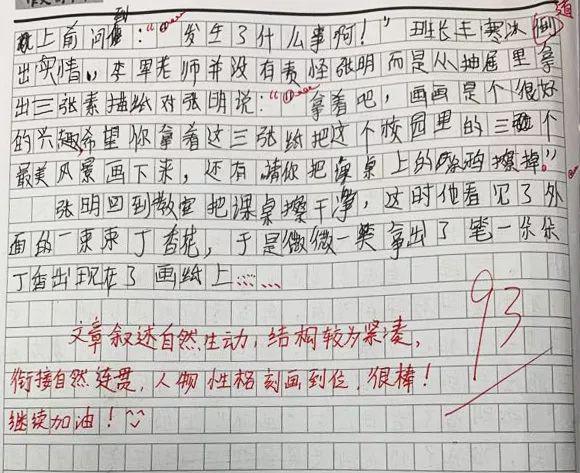 就上前问到：“发生了什么事啊！”班长王寒冰倒道
出实情。李军老师并没有责怪张明而是从抽屉里拿
出三张素描纸对张明说：“拿着吧，画画是个很好
的兴趣，希望你拿着这三张纸把这个校园里的三个
最美风景画下来，还有请你把课桌上的涂鸦擦掉。”
张明回到教室把课桌擦干净，这时他看见了外
面的一束束丁香花，于是微微一笑拿出了笔一朵朵
丁香出现在了画纸上……
93
文章叙述自然生动，结构较为紧凑，
衔接自然连贯，人物性格刻画到位，很棒！
继续加油！